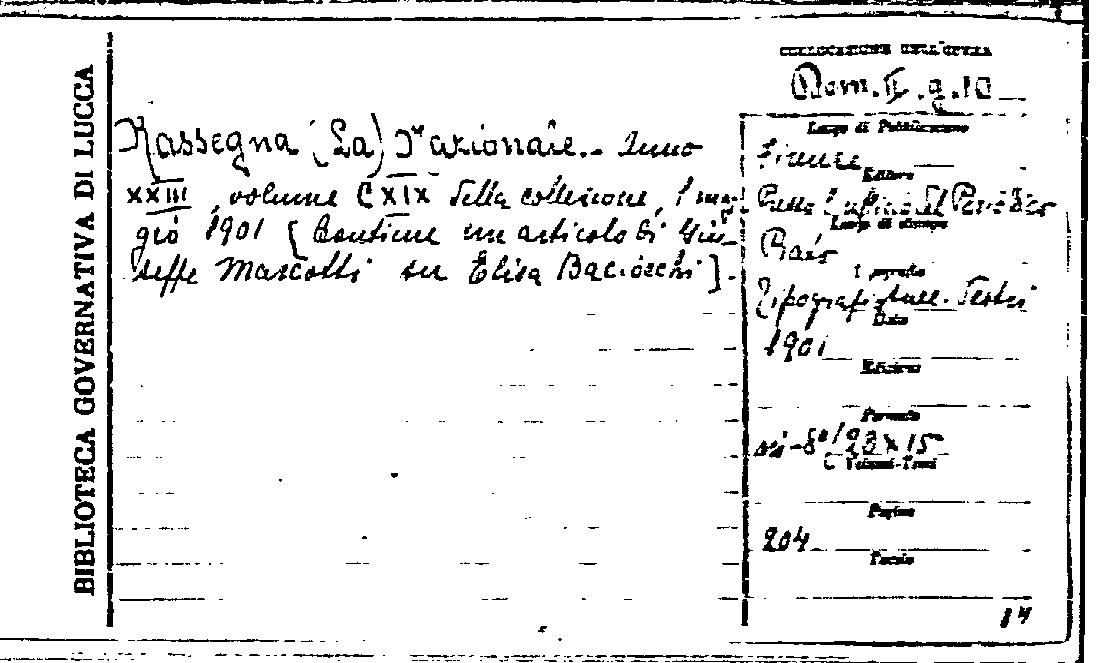 BIBLIOTECA GOVERNATIVA DI LUCCA
COLLOCAZIONE DELL'OPERA
Rom. II. g. 10
Rassegna (La) Nazionale. - Anno
XXIII, volume CXIX della collezione, 1 mag-
gio 1901 [Contiene un articolo di Giu-
seppe Mascotti su Elisa Baciocchi].
Luogo di Pubblicazione
Firenze
Editore
Presso l'Ufficio del Periodico
Luogo di stampa
Tipografia
Data
1901
Edizione
Formato
in-8°/23 x 15
Volumi-Tomi
Pagine
204
Tavole